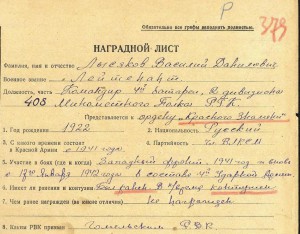 Р
Обязательно все графы заполнять полностью.
379
НАГРАДНОЙ ЛИСТ
Фамилия, имя и отчество Лысяков Василий Данилович
Военное звание Лейтенант
Должность, часть Командир 4й батареи, дивизиона
408 Минометного Полка РГК
Представляется к ордену "Красного Знамени"
1. Год рождения 1922 2. Национальность Русский
3. С какого времени состоит в Красной Армии с 1941 год. 4. Партийность ВЛКСМ
5. Участие в боях (где и когда) Западный фронт, 1941 год и вновь
с января 1942 года в составе 4й Ударной Армии
6. Имеет ли ранения и контузии Был ранен контузии
7. Чем ранее награжден (за какие отличия) Не награжден
8. Каким РВК призван Гомельским РВК